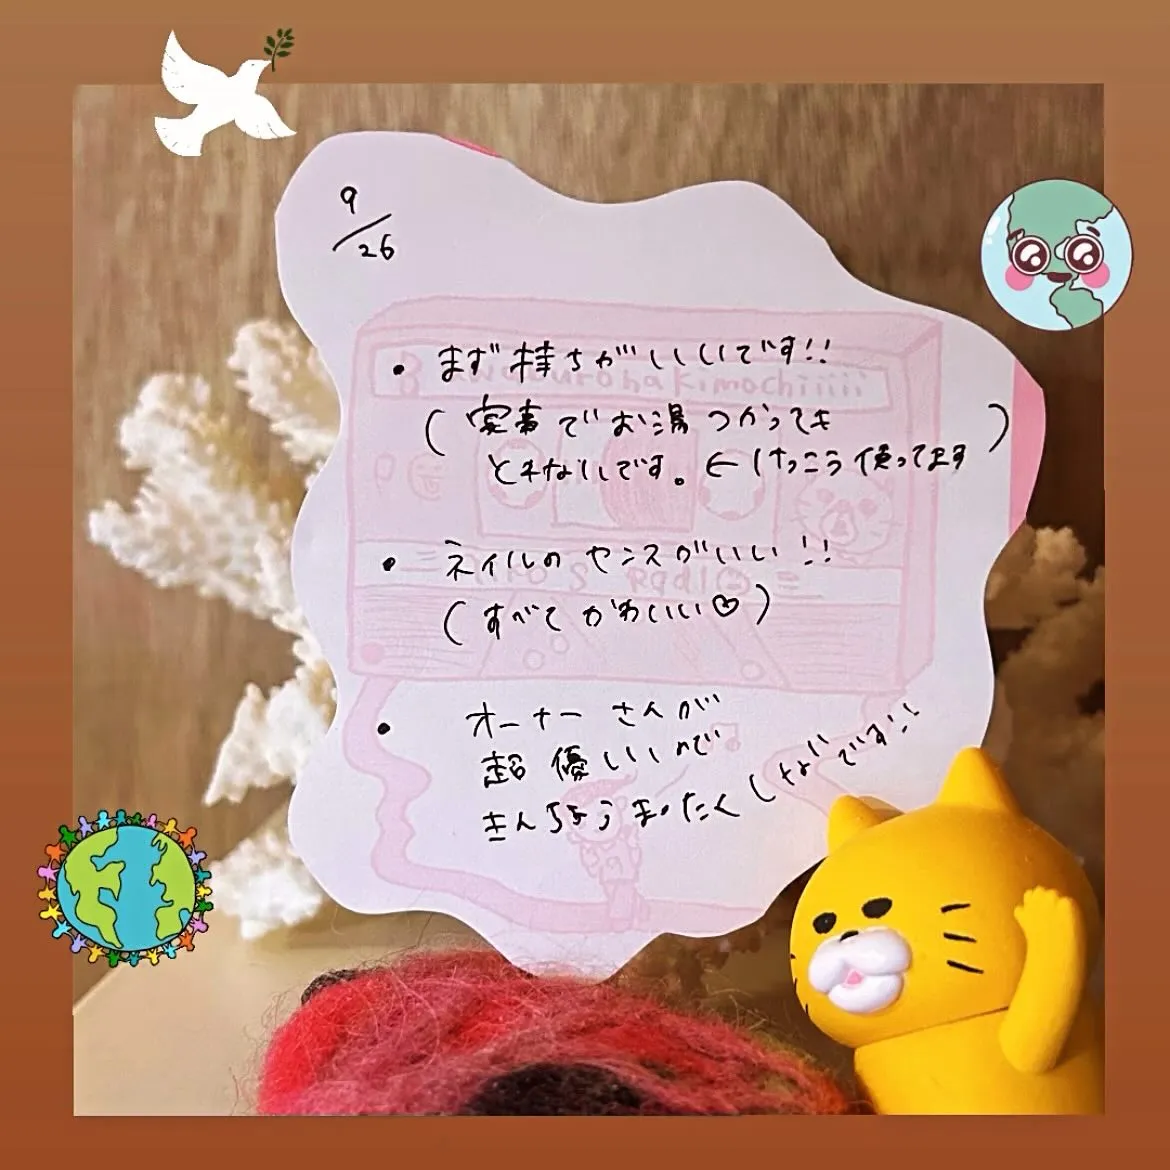 9/26
・まず持ちがいいです!!
(家事でお湯つかっても
とれないです。←けっこう使ってます)
・ネイルのセンスがいい!!
(すべてかわいい♡)
・オーナーさんが
超優しいので
きんちょうまったくしないです!!